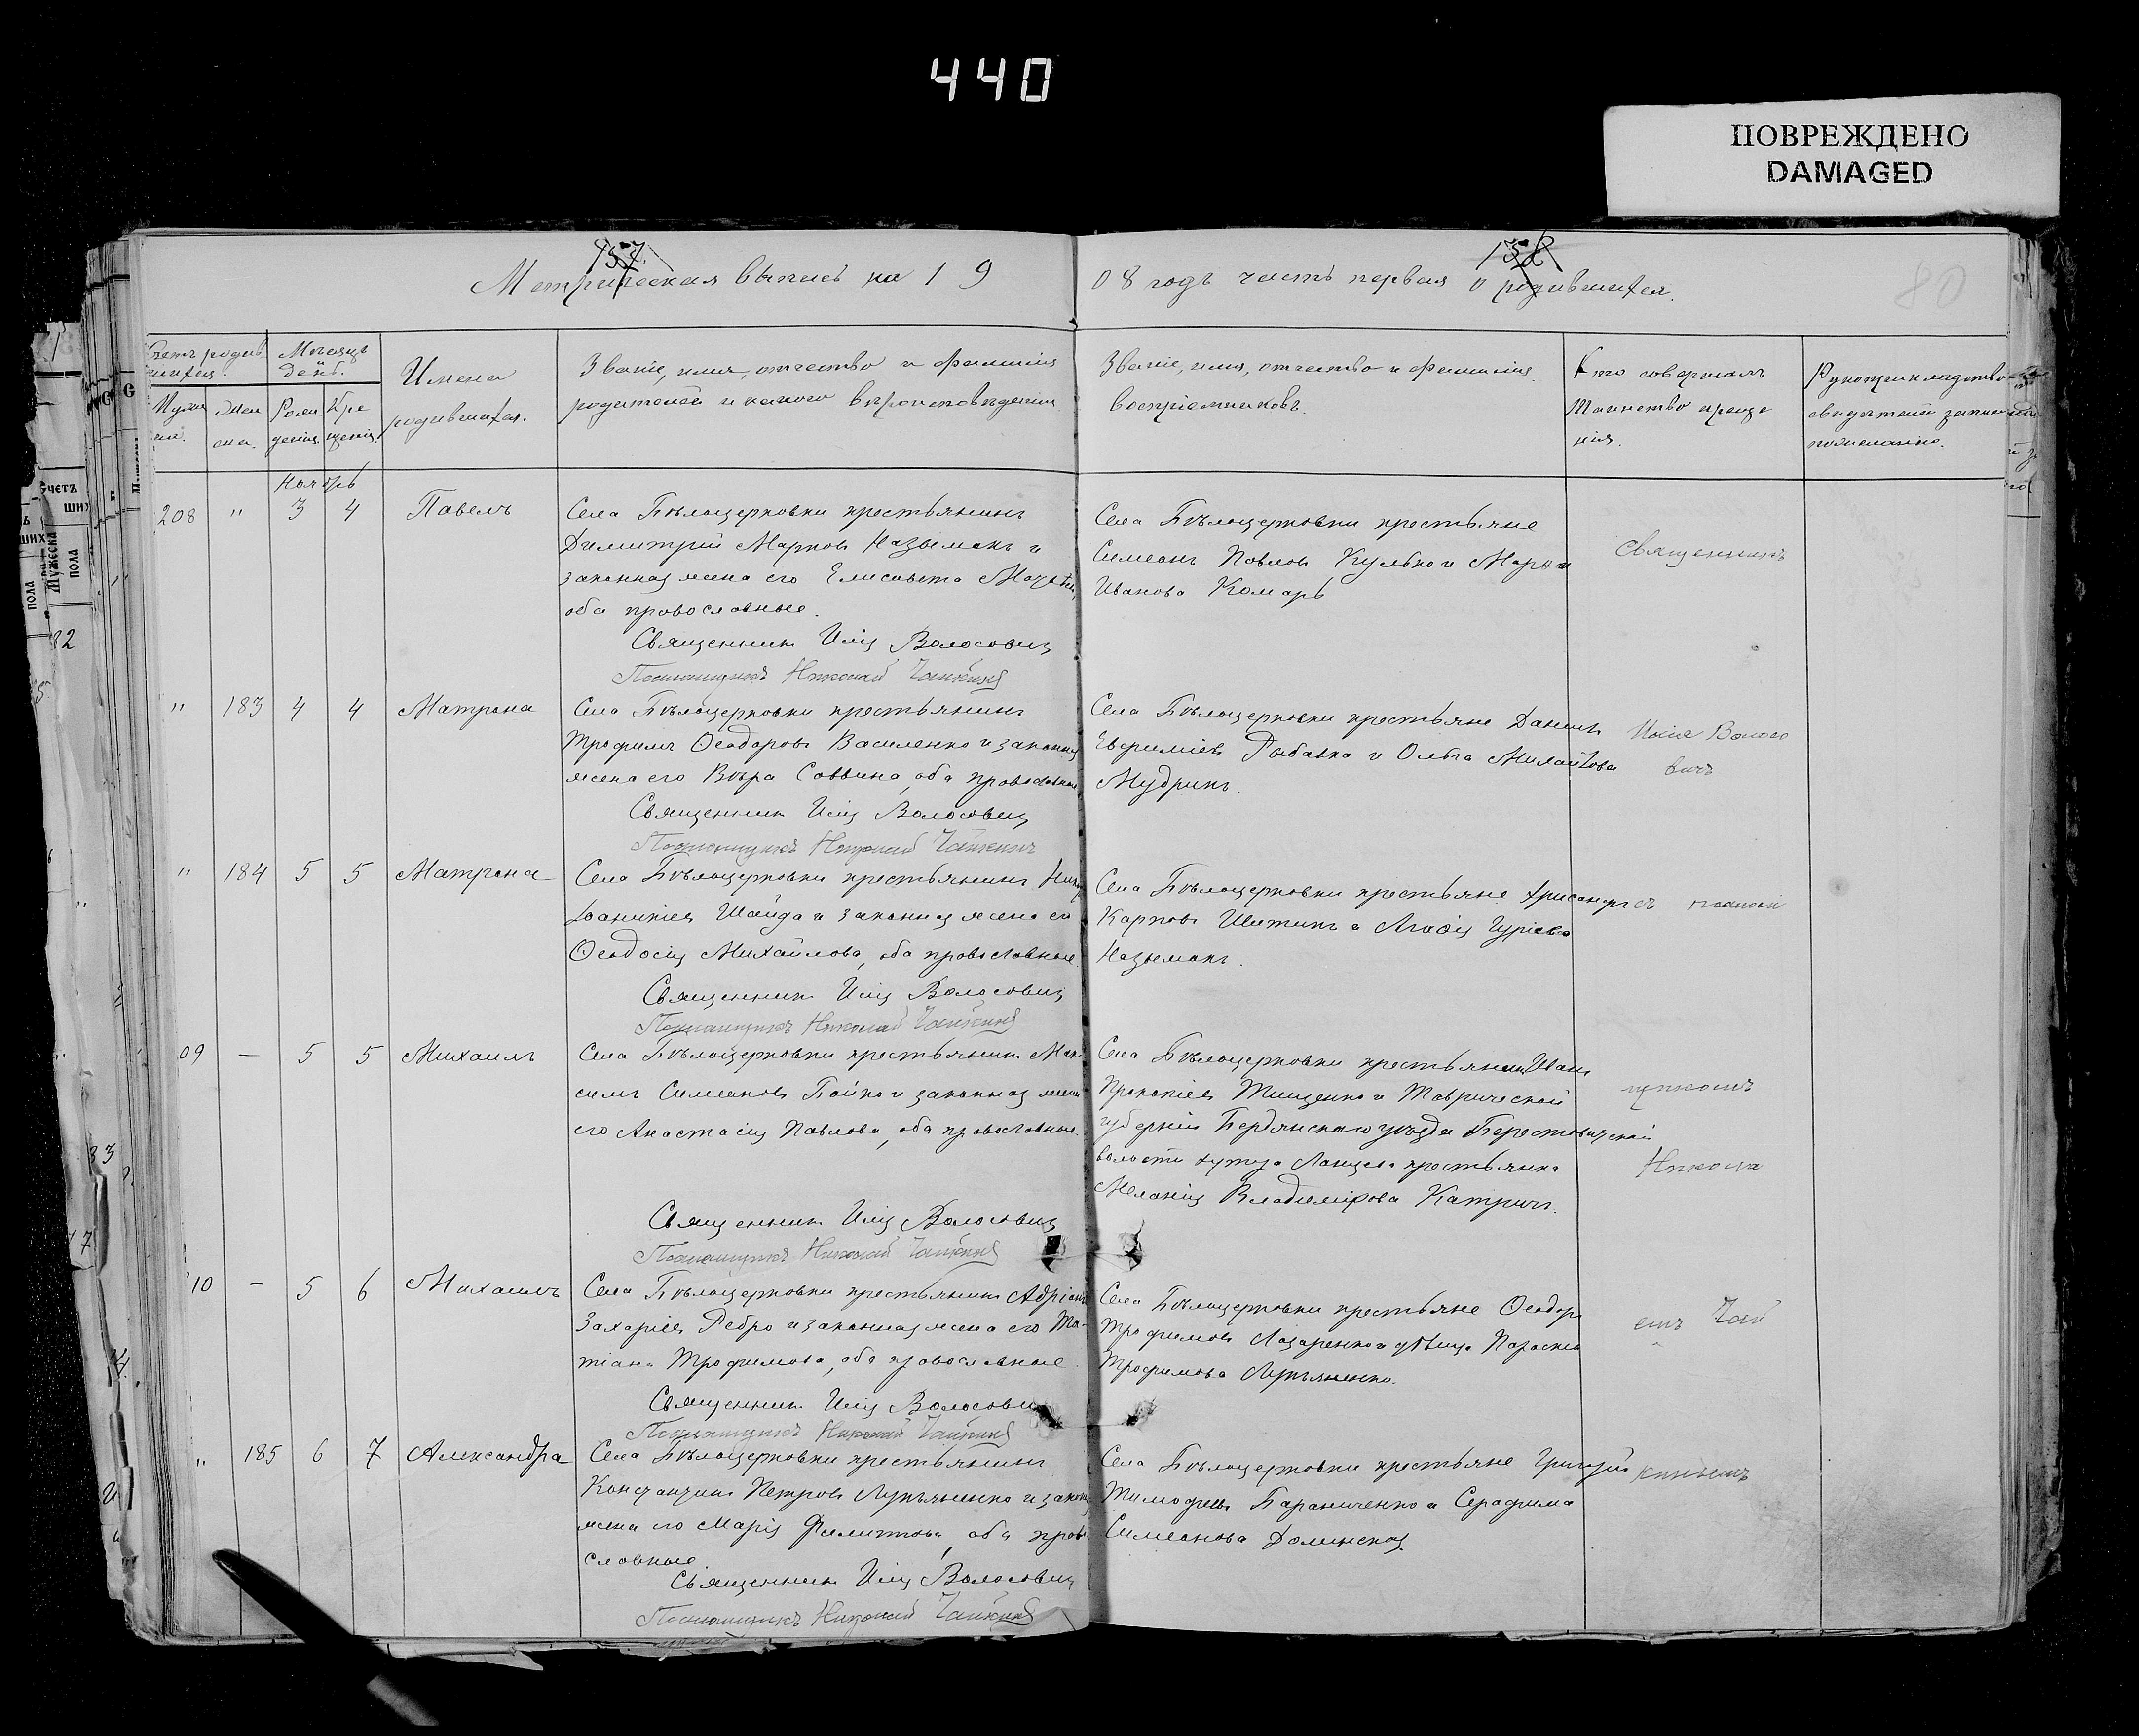 440
ПОВРЕЖДЕНО
DAMAGED
157.
158
80
Метрическая выпись на 1908 годъ часть первая о родившихся.
Счетъ родившихся.
Мѣсяцъ день.
Имена родившихся.
Званіе, имя, отчество и фамилія
родителей и какого вѣроисповѣданія
Званіе, имя, отчество и фамилія
воспріемниковъ.
Кто совершалъ
таинство креще
нія.
Рукоприкладство
свидѣтелей записи
по желанію.
Мужес
Жен
ска.
Рожденія
Крещенія
Ноябрь
208 " 3 4 Павелъ
Села Бѣлоцерковки крестьянинъ
Димитрій Марковъ Назымокъ и
законная жена его Елисавета
оба православные.
Священникъ Илія Волосовичъ
Псаломщикъ Николай Чайкинъ
Села Бѣлоцерковки крестьяне
Симеонъ Павловъ Кулько и Марія
Иванова Комаръ
Священникъ
" 183 4 4 Матрона
Села Бѣлоцерковки крестьянинъ
Трофимъ Ѳеодоровъ Василенко и законная
жена его Вѣра Саввина, оба православные
Священникъ Илія Волосовичъ
Псаломщикъ Николай Чайкинъ
Села Бѣлоцерковки крестьяне Даніилъ
Евфиміевъ Рыбалка и Ольга Михайлова
Мудрикъ.
Илія Волосо
вичъ
" 184 5 5 Матрона
Села Бѣлоцерковки крестьянинъ
Іоанникіевъ Шайда и законная жена его
Ѳеодосія Михайлова, оба православные
Священникъ Илія Волосовичъ
Псаломщикъ Николай Чайкинъ
Села Бѣлоцерковки крестьяне Хрисанфъ
Карповъ Шитикъ и Агафія Гуріева
Назымокъ.
съ псалом
09 — 5 5 Михаилъ
Села Бѣлоцерковки крестьянинъ Мак
симъ Симеоновъ Бойко и законная жена
его Анастасія Павлова, оба православные.
Священникъ Илія Волосовичъ
Псаломщикъ Николай Чайкинъ
Села Бѣлоцерковки крестьянинъ Иванъ
Прокопіевъ Тищенко и Таврической
губерніи Бердянскаго уѣзда
волости хутора крестьянка
Меланія Владимірова Катричъ.
щикомъ
Никола
10 — 5 6 Михаилъ
Села Бѣлоцерковки крестьянинъ Адріанъ
Захаріевъ Ребро и законная жена его Та-
тіана Трофимова, оба православные.
Священникъ Илія Волосовичъ
Псаломщикъ Николай Чайкинъ
Села Бѣлоцерковки крестьяне Ѳеодоръ
Трофимовъ Лазаренко и дѣвица Параскева
Трофимова Лукьяненко.
емъ Чай
" 185 6 7 Александра
Села Бѣлоцерковки крестьянинъ
Константинъ Петровъ Лукьяненко и законная
жена его Марія Филиппова, оба право
славные.
Священникъ Илія Волосовичъ
Псаломщикъ Николай Чайкинъ
Села Бѣлоцерковки крестьяне Григорій
Тимофеевъ Бараниченко и Серафима
Симеонова Долинская.
кинымъ